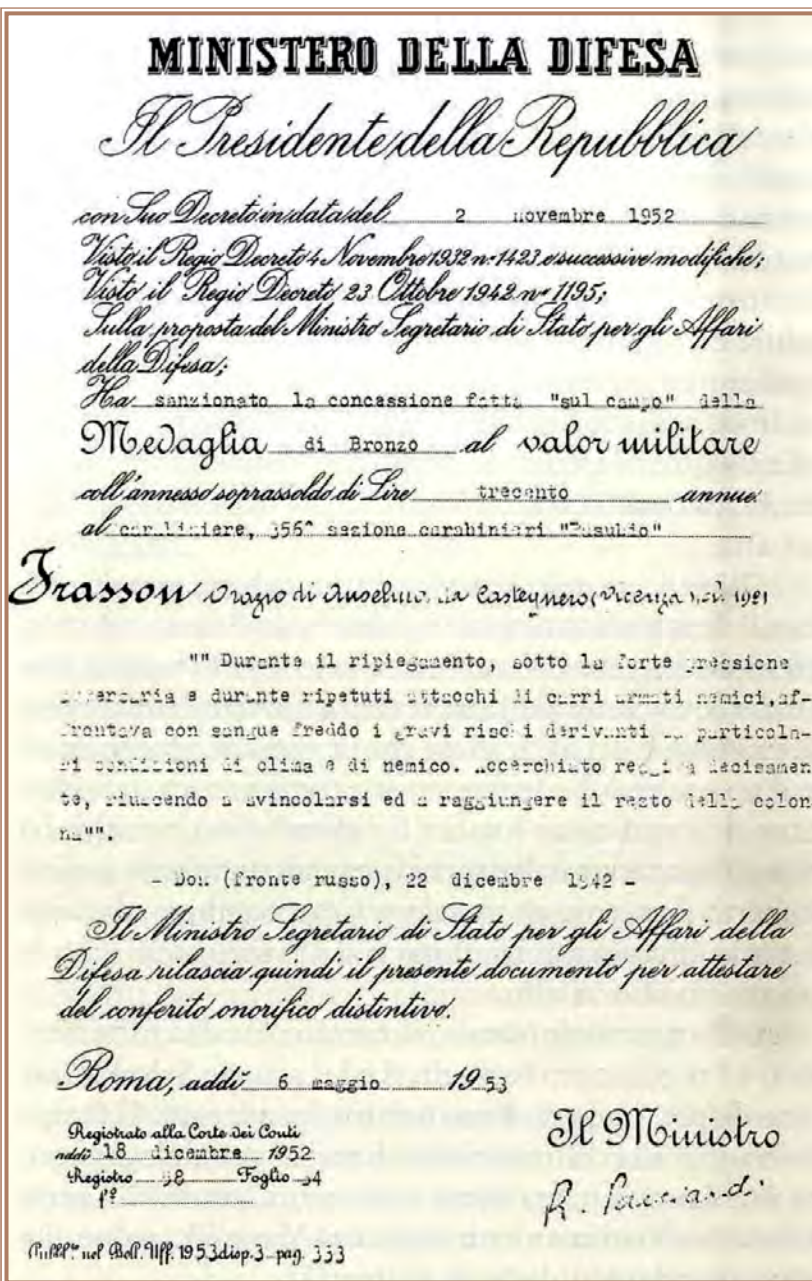 MINISTERO DELLA DIFESA
Il Presidente della Repubblica
con Suo Decreto in data del 2 novembre 1952
Visto il Regio Decreto 4 Novembre 1932 n. 1423 e successive modifiche;
Visto il Regio Decreto 23 Ottobre 1942 nº 1195;
Sulla proposta del Ministro Segretario di Stato per gli Affari
della Difesa;
Ha sanzionato la concessione fatta "sul campo" della
Medaglia di Bronzo al valor militare
coll'annesso soprassoldo di Lire trecento annue
al carabiniere, 356^ sezione carabinieri "Pasubio"
Frasson Orazio di Anselmo, da Castegnero (Vicenza) 1921
"" Durante il ripiegamento, sotto la forte pressione
avversaria e durante ripetuti attacchi di carri armati nemici, af-
frontava con sangue freddo i gravi rischi derivanti da particola-
ri condizioni di clima e di nemico. Accerchiato reagiva decisamen
te, riuscendo a svincolarsi ed a raggiungere il resto della colon
na"".
- Don (fronte russo), 22 dicembre 1942 -
Il Ministro Segretario di Stato per gli Affari della
Difesa rilascia quindi il presente documento per attestare
del conferito onorifico distintivo.
Roma, addì 6 maggio 1953
Registrato alla Corte dei Conti
addì 18 dicembre 1952
Registro Foglio
fº
Il Ministro
R. Pacciardi
Pubbl.to nel Boll. Uff. 1953 disp. 3 pag. 333